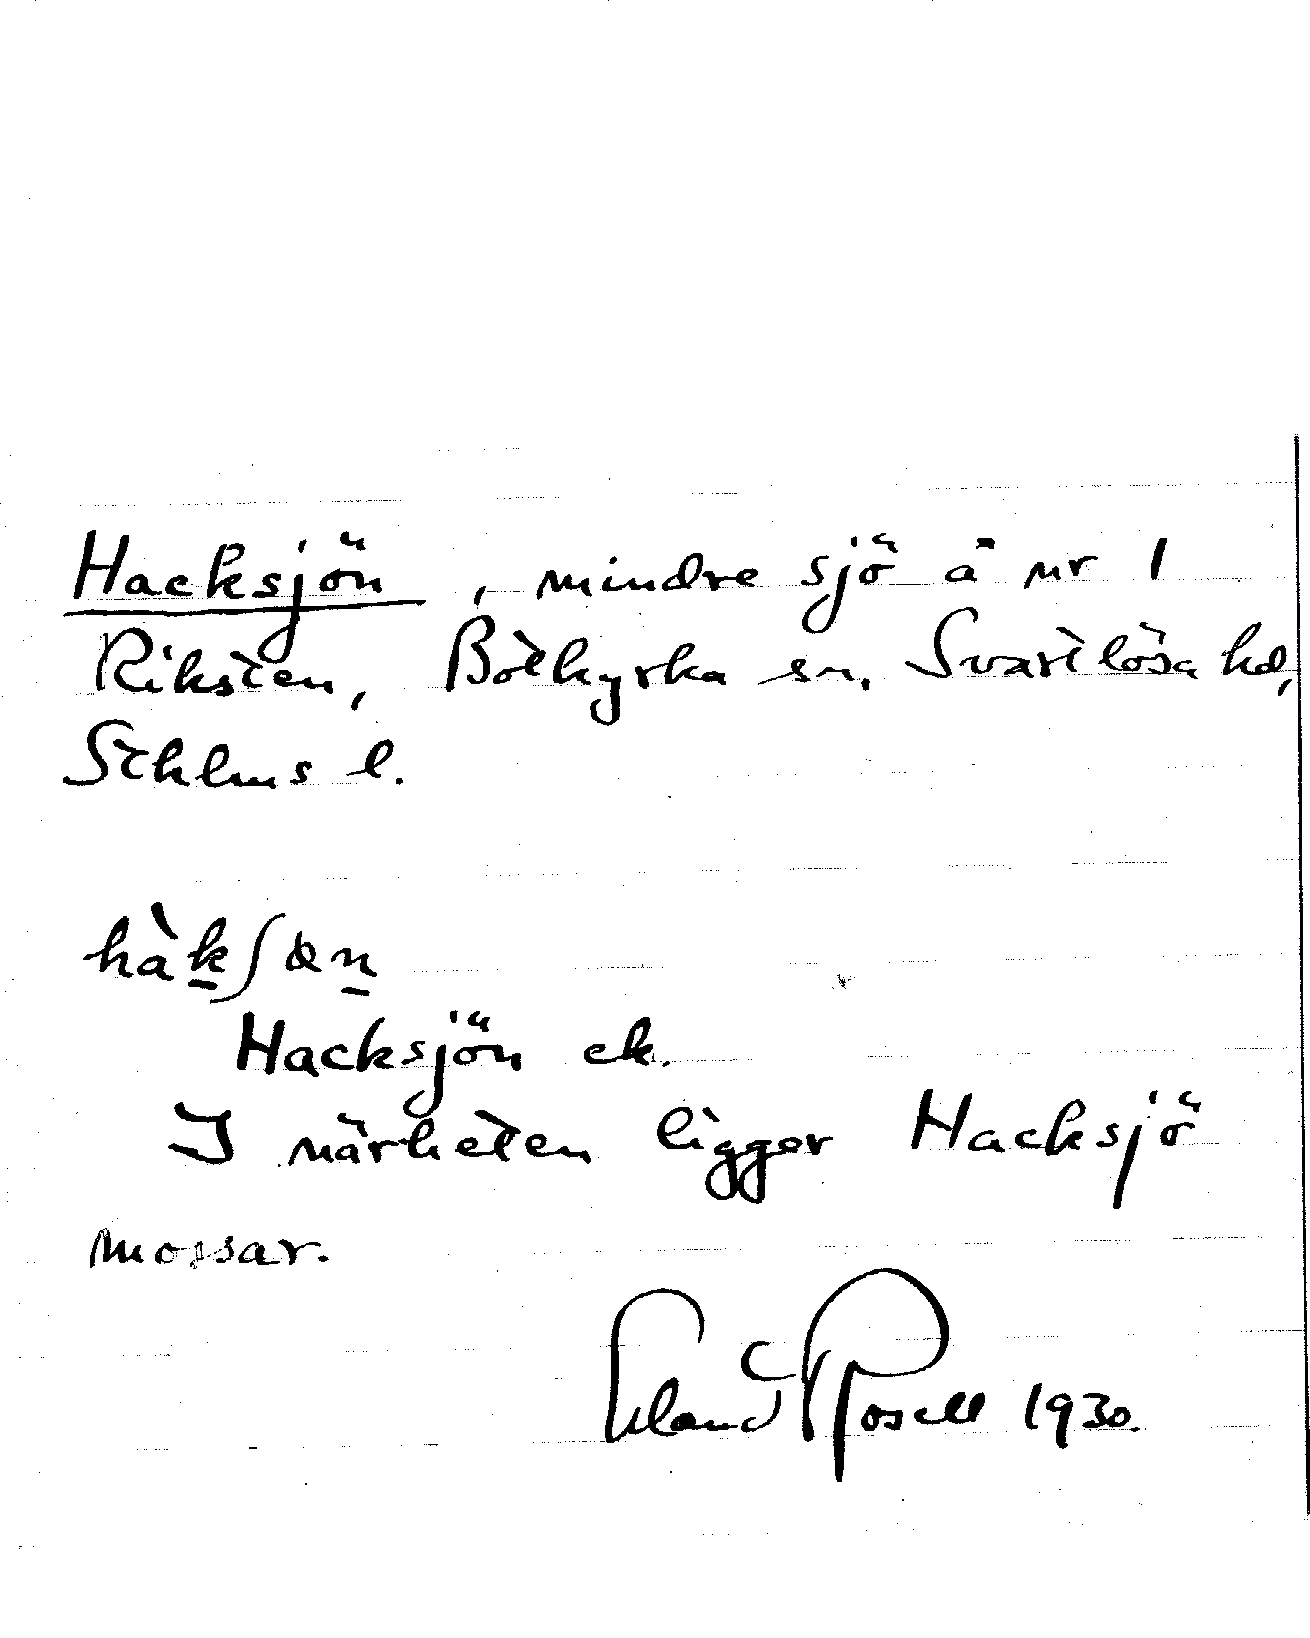 Hacksjön, mindre sjö å nr 1
Riksten, Botkyrka sn, Svartlösa hd,
Sthlms l.
hàk̲ʃȯn̲
Hacksjön ek.
I närheten ligger Hacksjö
mossar.
Erland Rosell 1930.